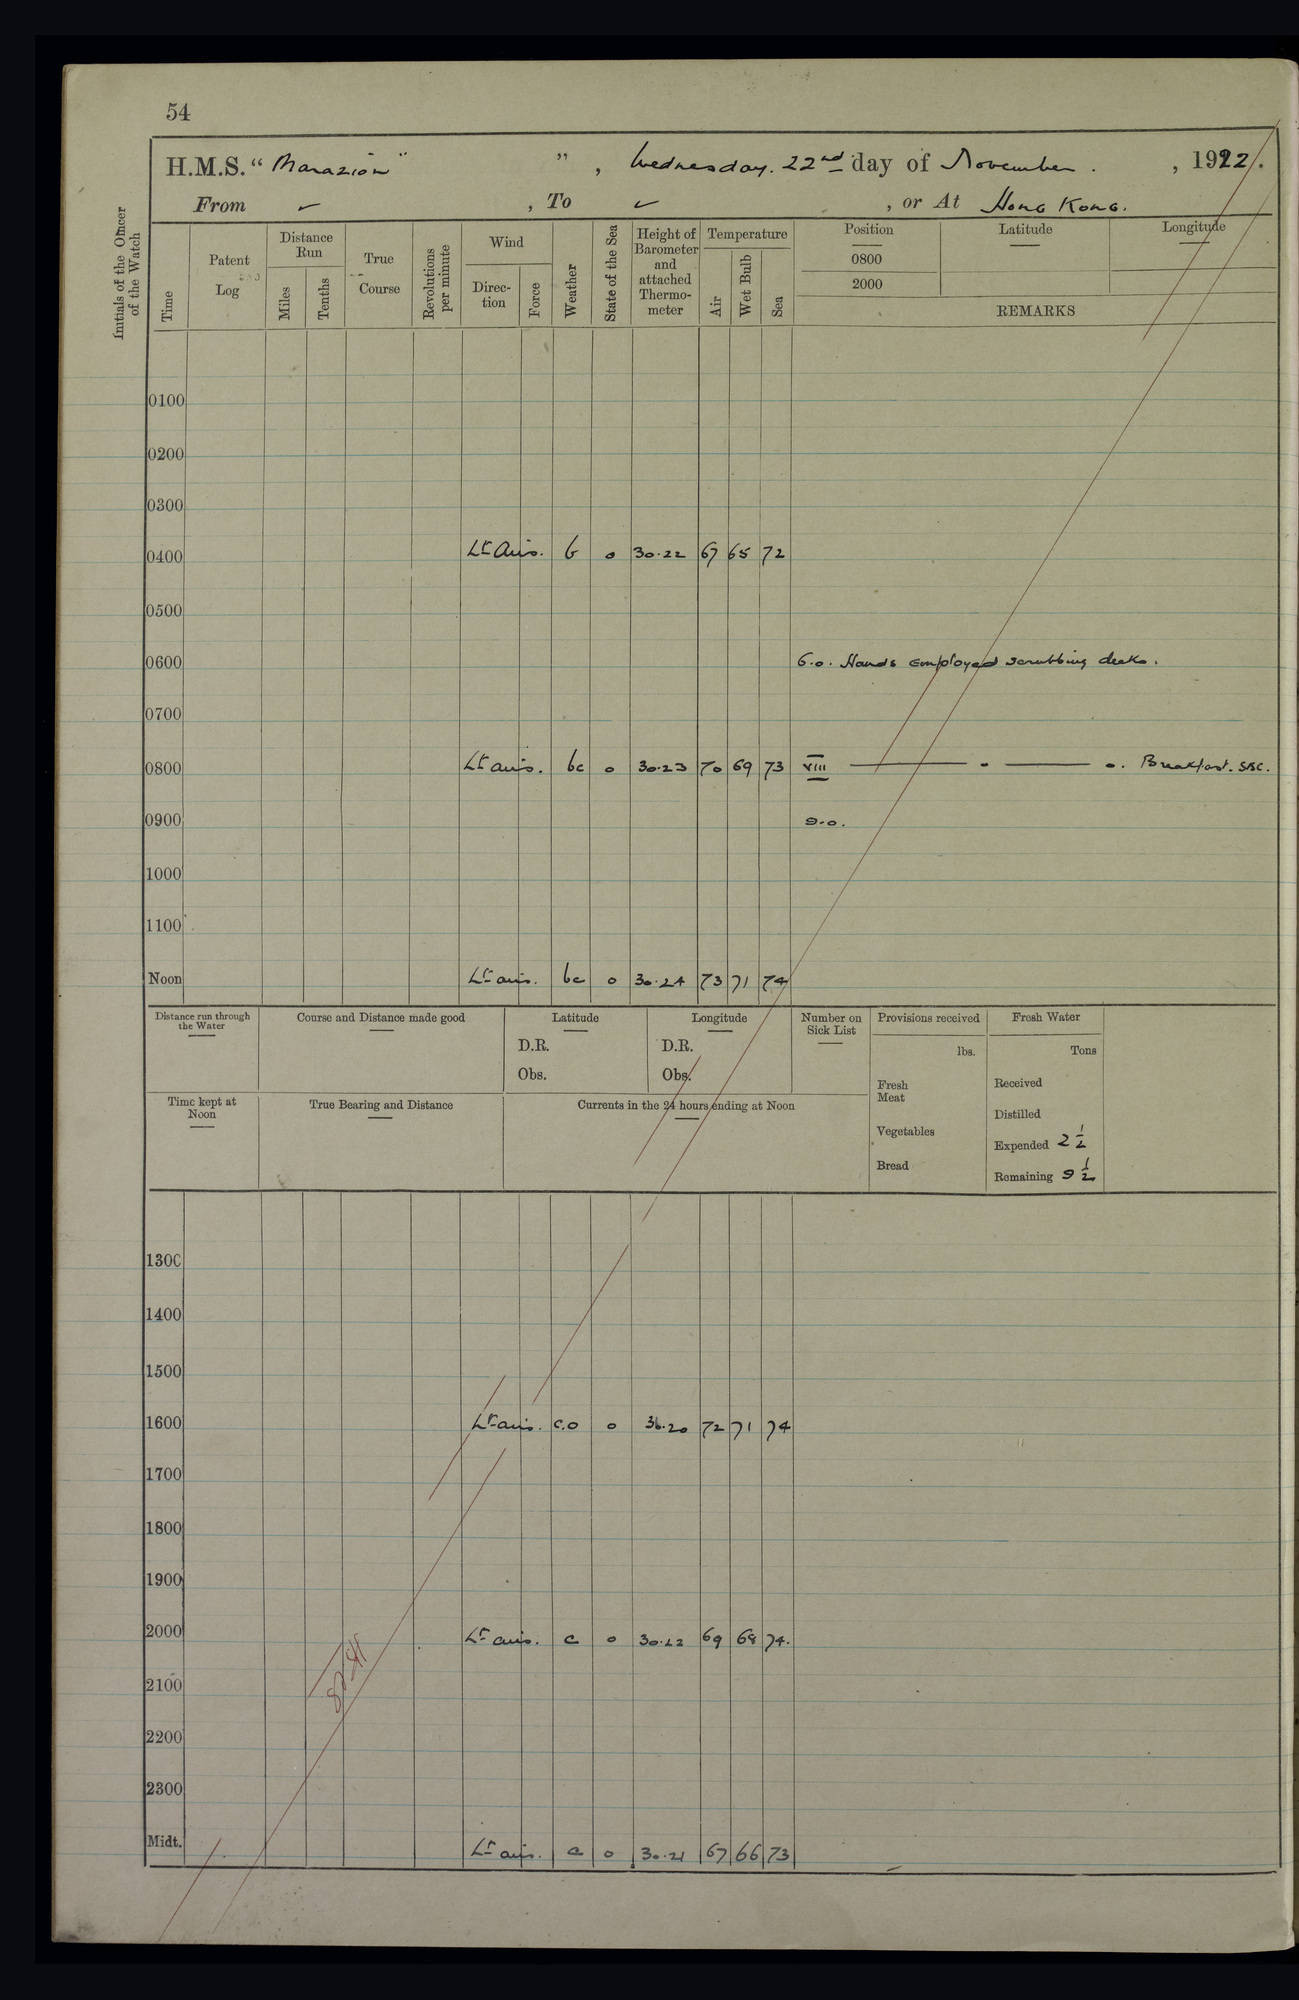 54
H.M.S. "Marazion" ", Wednesday. 22nd day of November. , 1922.
From ✓ , To ✓ , or At Hong Kong.
Initials of the Officer of the Watch
Time
Patent Log
Distance Run
Miles
Tenths
True Course
Revolutions per minute
Wind
Direction
Force
Weather
State of the Sea
Height of Barometer and attached Thermometer
Temperature
Air
Wet Bulb
Sea
Position
0800
2000
Latitude
Longitude
REMARKS
0100
0200
0300
0400 Lt Airs. b 0 30.22 67 65 72
0500
0600 6.0. Hands employed scrubbing decks.
0700
0800 Lt airs. bc 0 30.23 70 69 73 VIII — . — . Breakfast. SBC.
0900 9.0.
1000
1100
Noon Lt airs. bc 0 30.24 73 71 74
Distance run through the Water
Course and Distance made good
Latitude
D.R.
Obs.
Longitude
D.R.
Obs.
Number on Sick List
Provisions received
lbs.
Fresh Meat
Vegetables
Bread
Fresh Water
Tons
Received
Distilled
Expended 2 1/2
Remaining 9 1/2
Time kept at Noon
True Bearing and Distance
Currents in the 24 hours ending at Noon
1300
1400
1500
1600 Lt airs. c.o 0 30.20 72 71 74
1700
1800
1900
2000 Lt airs. c 0 30.22 69 68 74.
2100
2200
2300
Midt. Lt airs. c 0 30.21 67 66 73